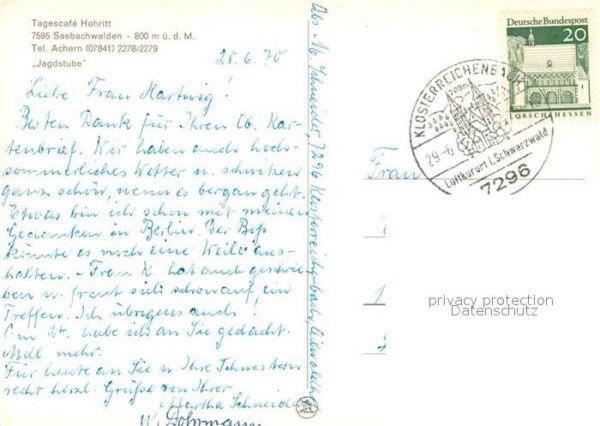 Tagescafé Hohritt
7595 Sasbachwalden - 800 m ü. d. M.
Tel. Achern (07841) 2278/2279
„Jagdstube"
28. 6. 70
Liebe Frau Hartwig!
Besten Dank für Ihren lb. Kar-
tenbrief. Wir haben auch hoch-
sommerliches Wetter u. schwitzen
ganz schön, wenn es bergan geht.
Etwas bin ich schon mit meinen
Gedanken in Berlin. Der
könnte es noch eine Weile aus-
halten. - Frau K. hat auch geschrie-
ben u. freut sich schon auf ein
Treffen. Ich übrigens auch!
Am 24. habe ich an Sie gedacht.
mehr.
Für heute an Sie u Ihre Schwestern
recht herzl. Grüße von Ihrer
Martha Schneider
W. Dohrmann
Abs. M. Schneider, 7296 Klosterreichenbach
Deutsche Bundespost
20
LORSCH/HESSEN
KLOSTERREICHENBACH
29.-6.
Luftkurort i. Schwarzwald
7296
Frau
privacy protection
Datenschutz